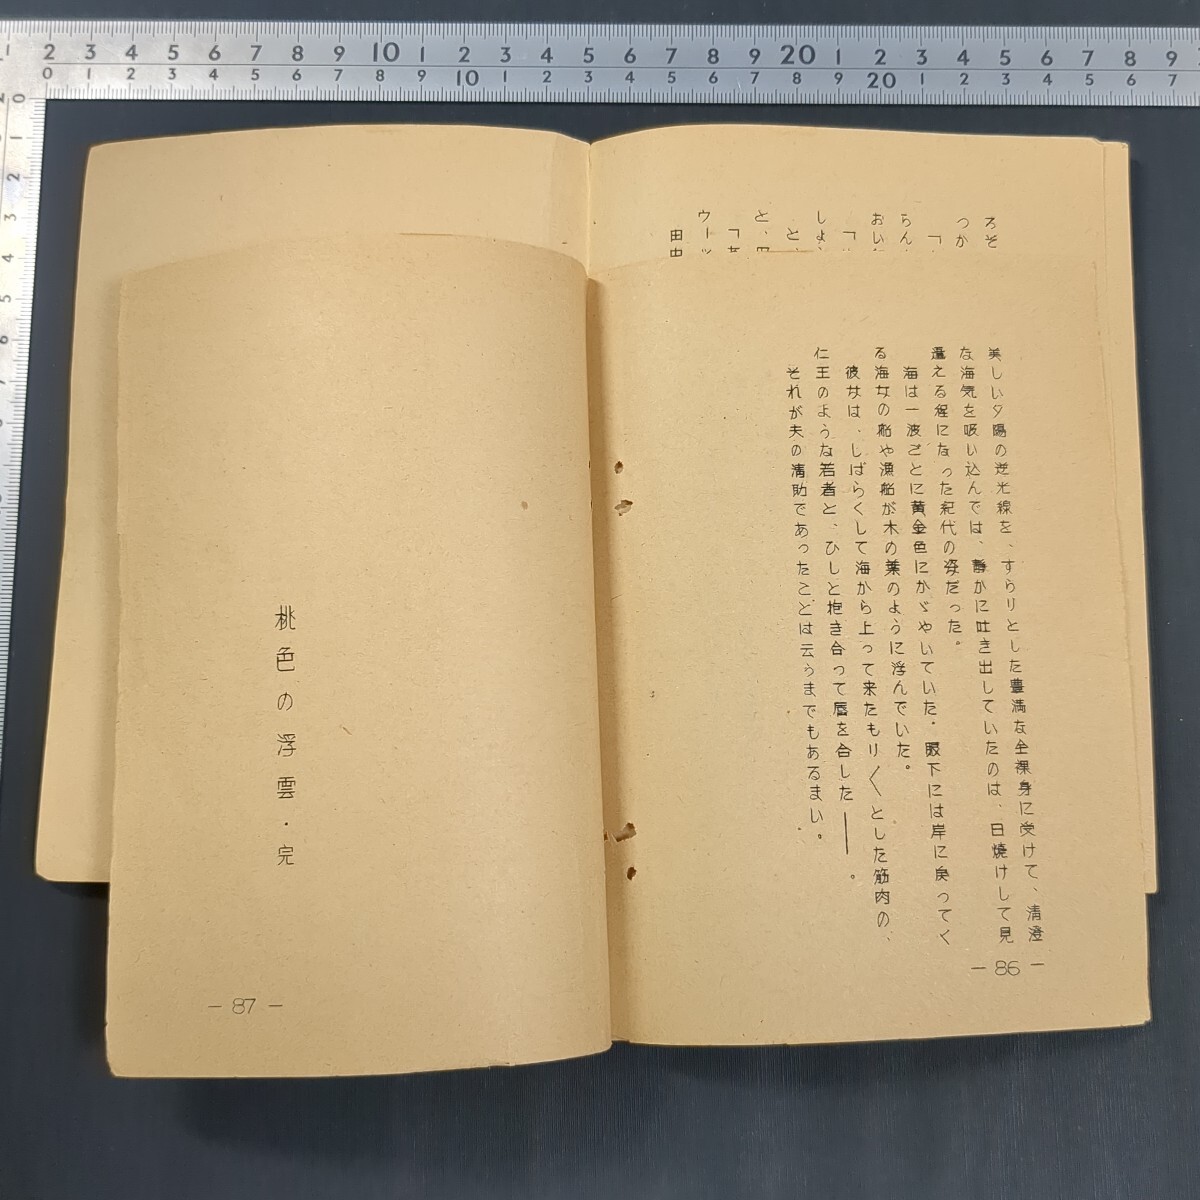 美しい夕陽の逆光線を、すらりとした豊満な全裸身に受けて、清澄
な海気を吸い込んでは、静かに吐き出していたのは、日焼けして見
違える程になった紀代の姿だった。
海は一波ごとに黄金色にかゞやいていた。眼下には岸に戻ってく
る海女の船や漁船が木の葉のように浮んでいた。
彼女は、しばらくして海から上って来たもり〱とした筋肉の、
仁王のような若者と、ひしと抱き合って唇を合した――。
それが夫の清助であったことは云うまでもあるまい。
— 86 —
桃色の浮雲・完
— 87 —
ろそ
つか
「
らん
おい
「
しょ
と
と、
「
ウーッ
田中
2 3 4 5 6 7 8 9 10 1 2 3 4 5 6 7 8 9 20 1 2 3 4 5 6 7 8 9
0 1 2 3 4 5 6 7 8 9 10 1 2 3 4 5 6 7 8 9 20 1 2 3 4 5 6 7
0 1 2 3 4 5 6 7